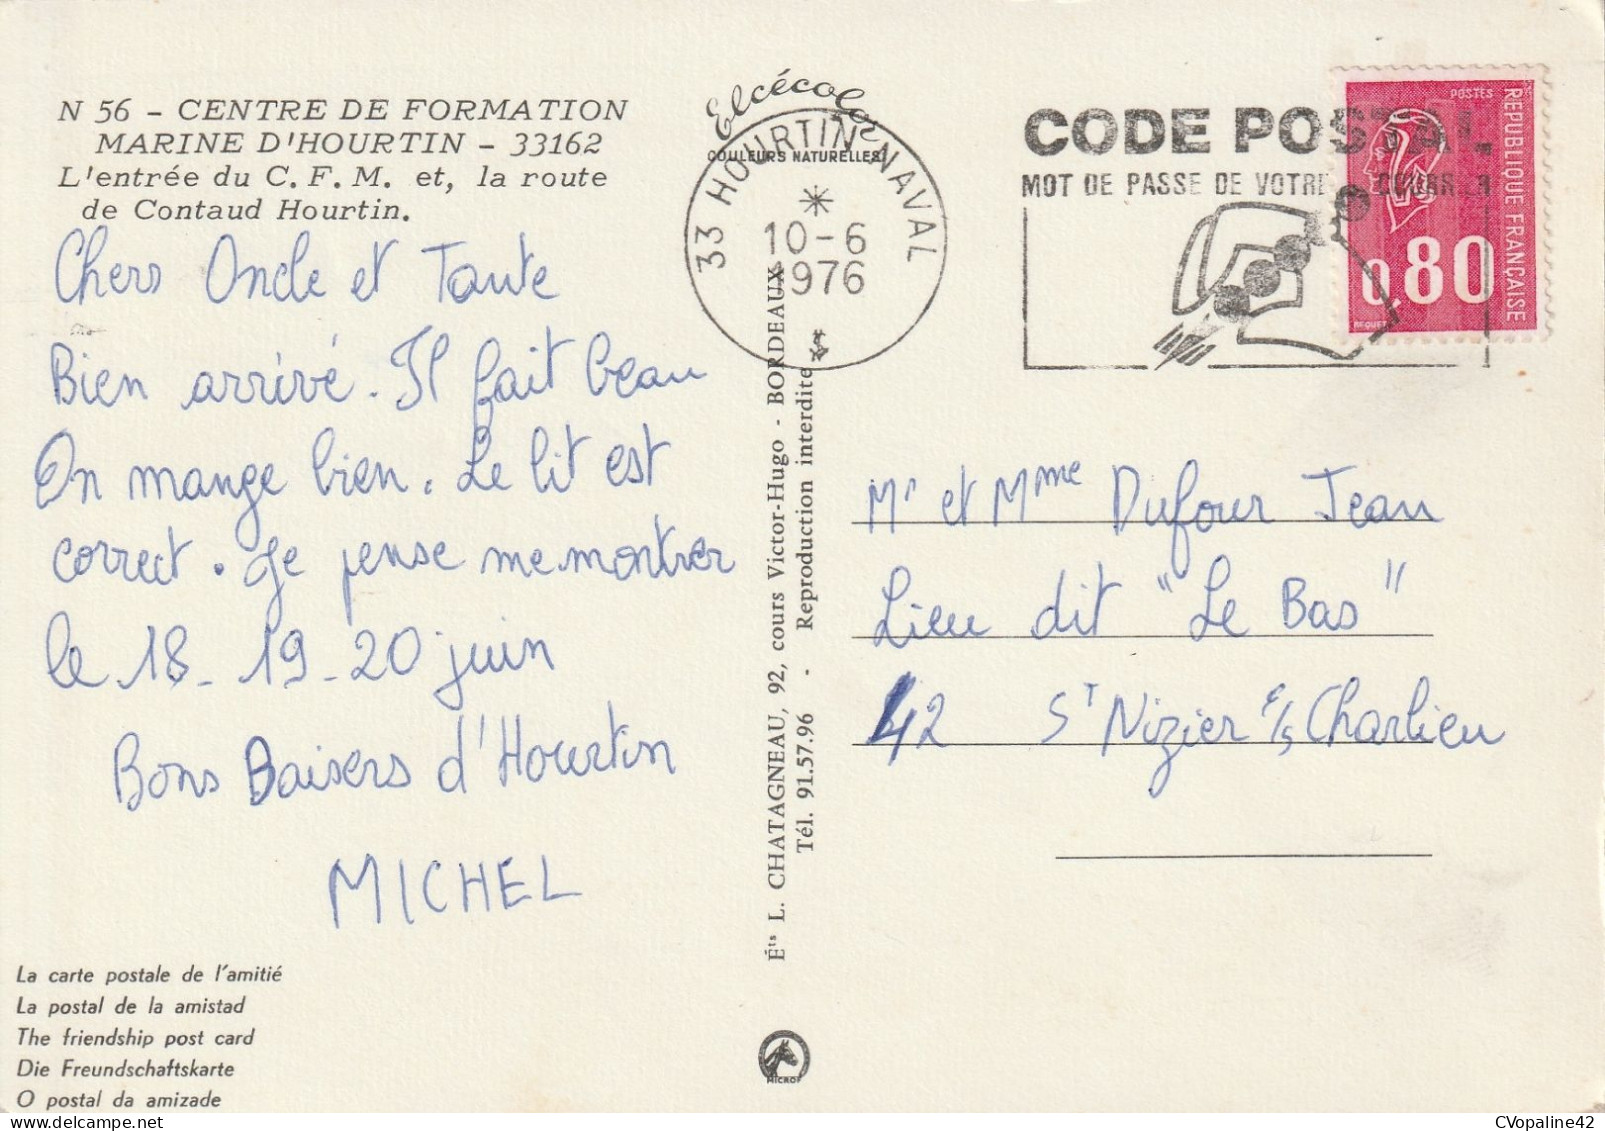 N 56 - CENTRE DE FORMATION
MARINE D'HOURTIN - 33162
L'entrée du C. F. M. et, la route
de Contaud Hourtin.
Chers Oncle et Tante
Bien arrivé. Il fait beau
On mange bien. Le lit est
correct. Je pense me montrer
le 18 - 19 - 20 juin
Bons Baisers d'Hourtin
MICHEL
La carte postale de l'amitié
La postal de la amistad
The friendship post card
Die Freundschaftskarte
O postal da amizade
Elcécolor
COULEURS NATURELLES
33 HOURTIN-NAVAL
10-6
1976
Éts L. CHATAGNEAU, 92, cours Victor-Hugo - BORDEAUX
Tél. 91.57.96 - Reproduction interdite
MICROF
CODE POSTAL
MOT DE PASSE DE VOTRE COURRIER
POSTES
REPUBLIQUE FRANÇAISE
0,80
BEQUET
Mr et Mme Dufour Jean
Lieu dit "Le Bas"
42 St Nizier s/s Charlieu
CVopaline42